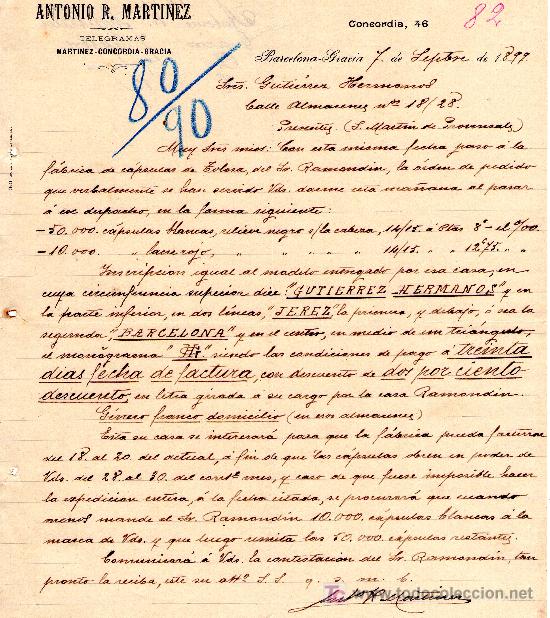 ANTONIO R. MARTINEZ
TELEGRAMAS
MARTINEZ-CONCORDIA-GRACIA
Concordia, 46
82
80/90
Barcelona-Gracia 7 de Septbre de 1897
Sres. Gutiérrez Hermanos
Calle Almacenes, nos 18/28.
Presentes (S. Martin de Provensals)
Muy Sres mios: Con esta misma fecha paso á la
fábrica de cápsulas de Tolosa, del Sr. Ramondin, la órden de pedido
que verbalmente se han servido Vds. darme esta mañana al pasar
á su despacho, en la forma siguiente:
-50.000 cápsulas blancas, relieve negro s/ la cabeza, 14/15 á Ptas 8'- el %00
-10.000 " lacre rojo, " " " " 14/15 " " 12'75 " "
Inscripcion igual al modelo entregado por esa casa, en
cuya circunferencia superior dice "GUTIÉRREZ HERMANOS" y en
la parte inferior, en dos líneas, "JEREZ" la primera, y debajo, ó sea la
segunda, "BARCELONA" y en el centro, en medio de un triángulo,
el monograma "GH" siendo las condiciones de pago á treinta
días fecha de factura, con descuento de dos por ciento
descuento, en letra girada á su cargo por la casa Ramondin.
Género franco domicilio (en sus almacenes)
Esta su casa se interesará para que la fábrica pueda facturar
del 18 al 20 del actual, á fin de que las cápsulas obren en poder de
Vds. del 28 al 30 del corrte mes, y caso de que fuese imposible hacer
la expedicion entera, á la fecha citada, se procurará que cuando
menos mande el Sr. Ramondin 10.000 cápsulas blancas á la
marca de Vds. y que luego remita las 50.000 cápsulas restantes.
Comunicaré á Vds. la contestacion del Sr. Ramondin, tan
pronto la reciba, este su atto S. S. q. s. m. b.
R. Martinez
todocoleccion.net